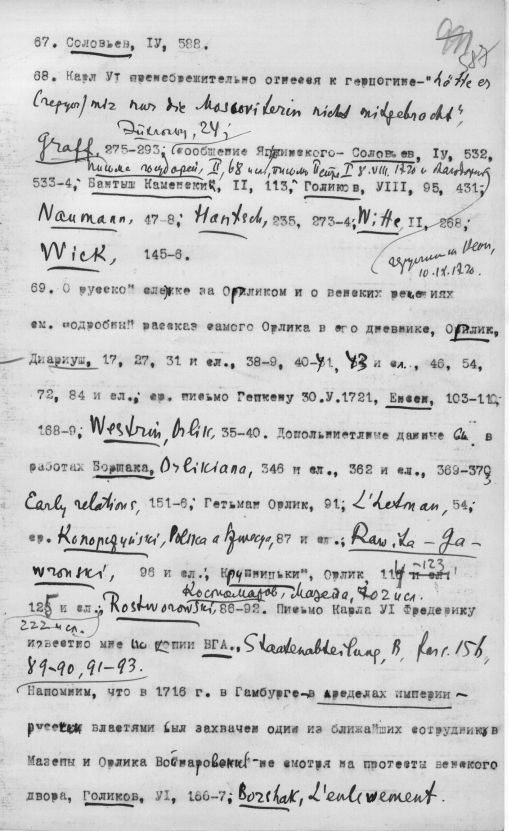 587
67. Соловьев, IУ, 588.
68. Карл УI пренебрежительно отнесся к герцогине-"hätte er
(герцог) mir nur die Moscoviterin nicht mitgebracht",
24;
Graff, 275-293; (сообщение Ягужинского- Соловьев, IУ, 532,
письма государей, II, 68 письмо Петра I 8.VIII.1720
533-4; Бантыш Каменский, II, 113; Голиков, УIII, 95, 431;
Naumann, 47-8; Hantsch, 235, 273-4; Witte, II, 268;
10.IX.1720.
Wick, 145-6.
69. О русской слежке за Орликом и о венских решениях
см. подробный рассказ самого Орлика в его дневнике, Орлик,
Диариуш, 17, 27, 31 и сл., 38-9, 40-41, 43 и сл., 46, 54,
72, 84 и сл.; ср. письмо Гепкену 30.У.1721, Енсен, 103-110;
168-9; Westrin, Orlik, 35-40. Дополниетлные данные см. в
работах Борщака, Orlikiana, 346 и сл., 362 и сл., 369-373
Early relations, 151-6; Гетьман Орлик, 91; L'hetman, 54;
ср. Konopczyński, Polska a Szwecja, 87 и сл.; Rawita-Ga-
wronski, 96 и сл.; Крупницький, Орлик, 114-123
Костомаров, Мазепа, 702 и сл.
125 и сл.; Rostworowski, 86-92. Письмо Карла УI Фредерику
222 и сл.
известно мне по копии ВГА., Staatenabteilung, B, fasc. 15b,
89-90, 91-93.
Напомним, что в 1716 г. в Гамбурге-в пределах империи-
русскими властями был захвачен один из ближайших сотрудников
Мазепы и Орлика Войнаровский-не смотря на протесты венского
двора, Голиков, УI, 166-7; Borshak, L'enlèvement.